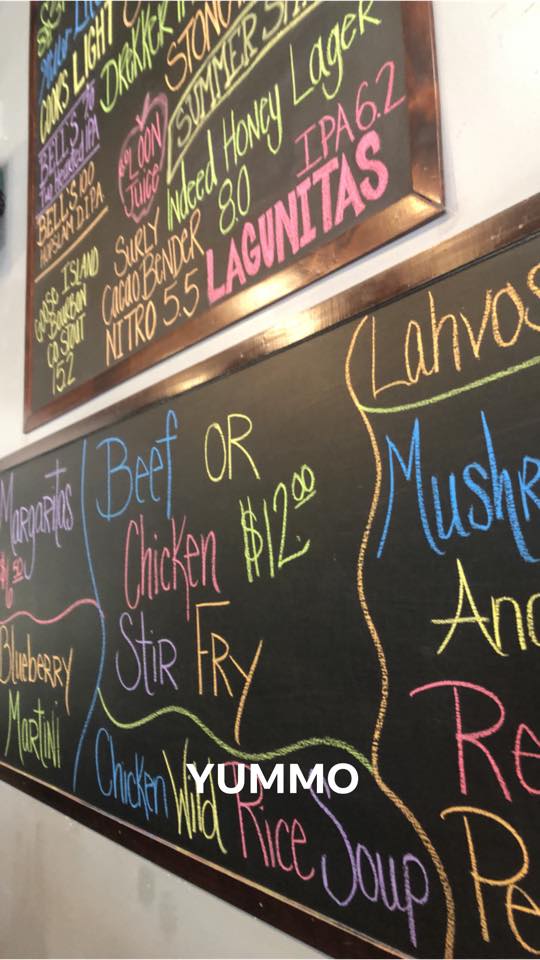 COORS LIGHT
DREKKER
STONE
SUMMER
BELL'S
Two Hearted IPA
BELL'S
HOPSLAM D.IPA
LOON
Juice
Indeed Honey Lager
8.0
IPA 6.2
LAGUNITAS
GOOSE ISLAND
Bourbon
Co. STOUT
15.2
SURLY
CacaO BENDER
NITRO 5.5
Margaritas
Blueberry
Martini
Beef OR
Chicken $12.00
StiR FRy
Chicken Wild Rice Soup
Lahvos
And
YUMMO